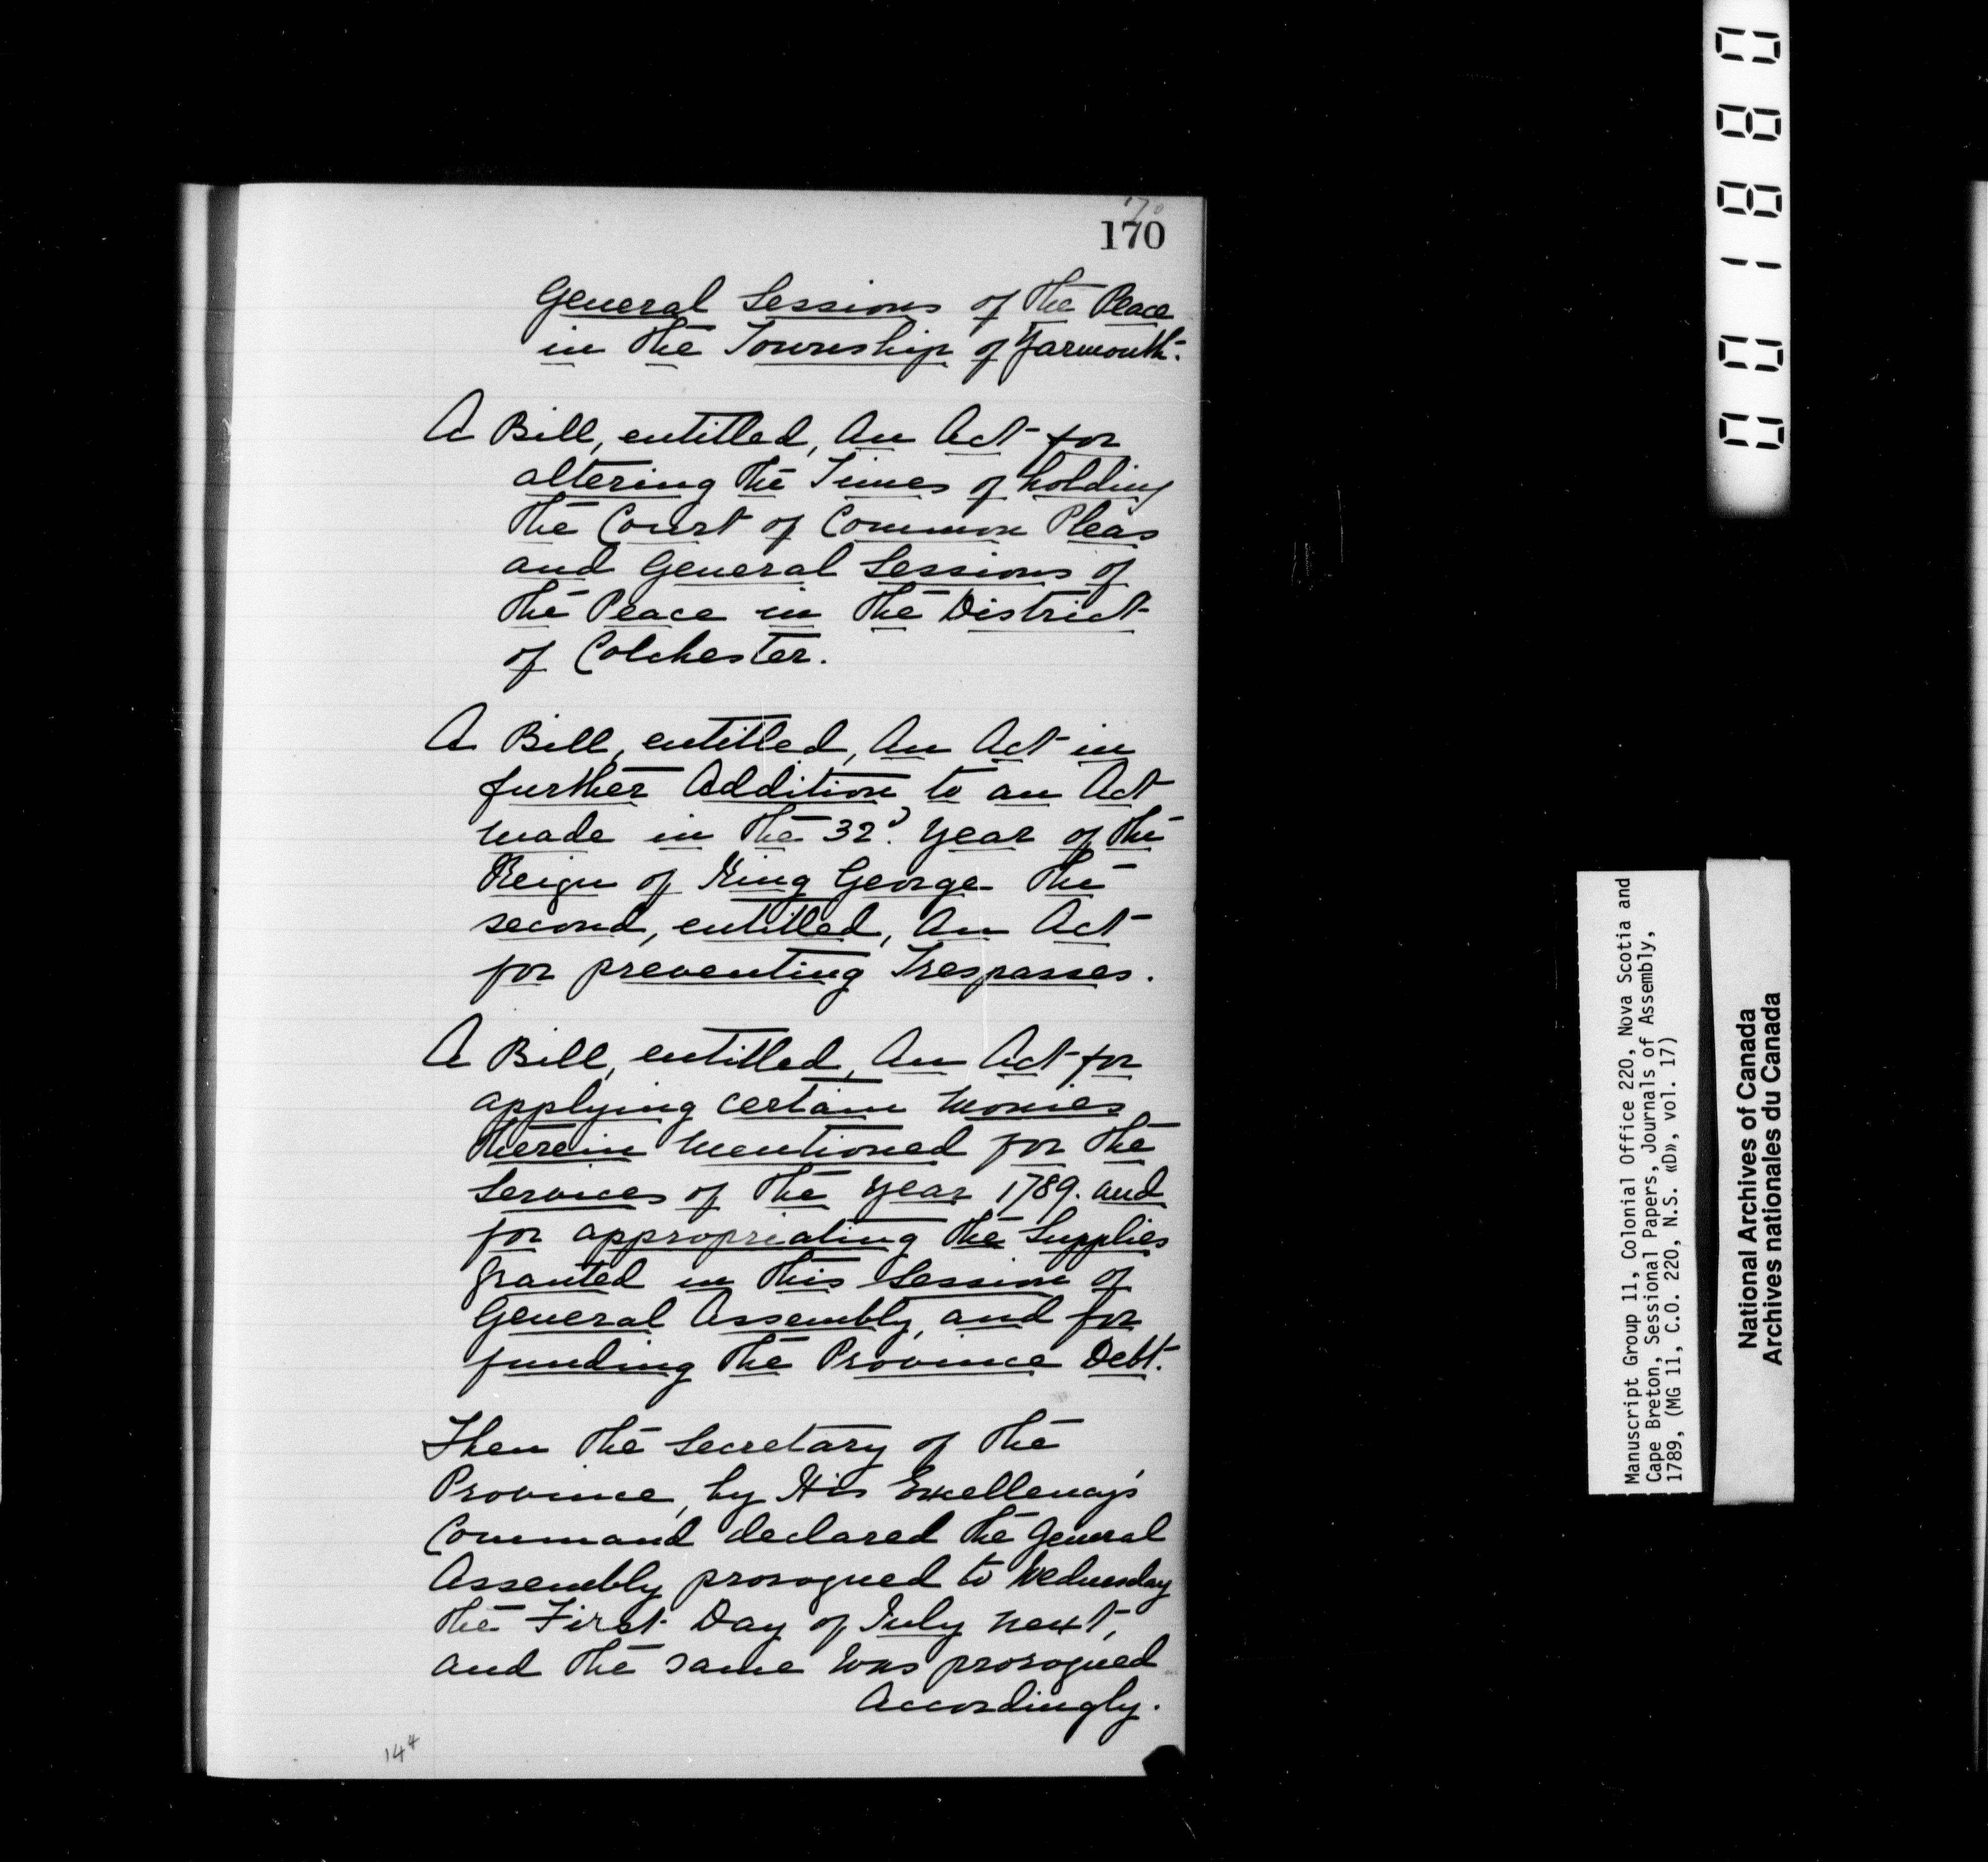 170
170
General Sessions of the Peace
in the Township of Yarmouth.
A Bill, entitled, An Act for
altering the Times of holding
the Court of Common Pleas
and General Sessions of
the Peace in the District
of Colchester.
A Bill, entitled, An Act in
further Addition to an Act
made in the 32d. year of the
Reign of King George the
second, entitled, An Act
for preventing Trespasses.
A Bill, entitled, An Act for
applying certain Monies
therein mentioned for the
Services of the year 1789. and
for appropriating the Supplies
granted in this Session of
General Assembly, and for
funding the Province Debt.
Then the Secretary of the
Province, by His Excellency's
Command declared the General
Assembly prorogued to Wednesday
the First Day of July next,
and the same was prorogued
Accordingly.
144
001880
Manuscript Group 11, Colonial Office 220, Nova Scotia and
Cape Breton, Sessional Papers, Journals of Assembly,
1789, (MG 11, C.O. 220, N.S. «D», vol. 17)
National Archives of Canada
Archives nationales du Canada